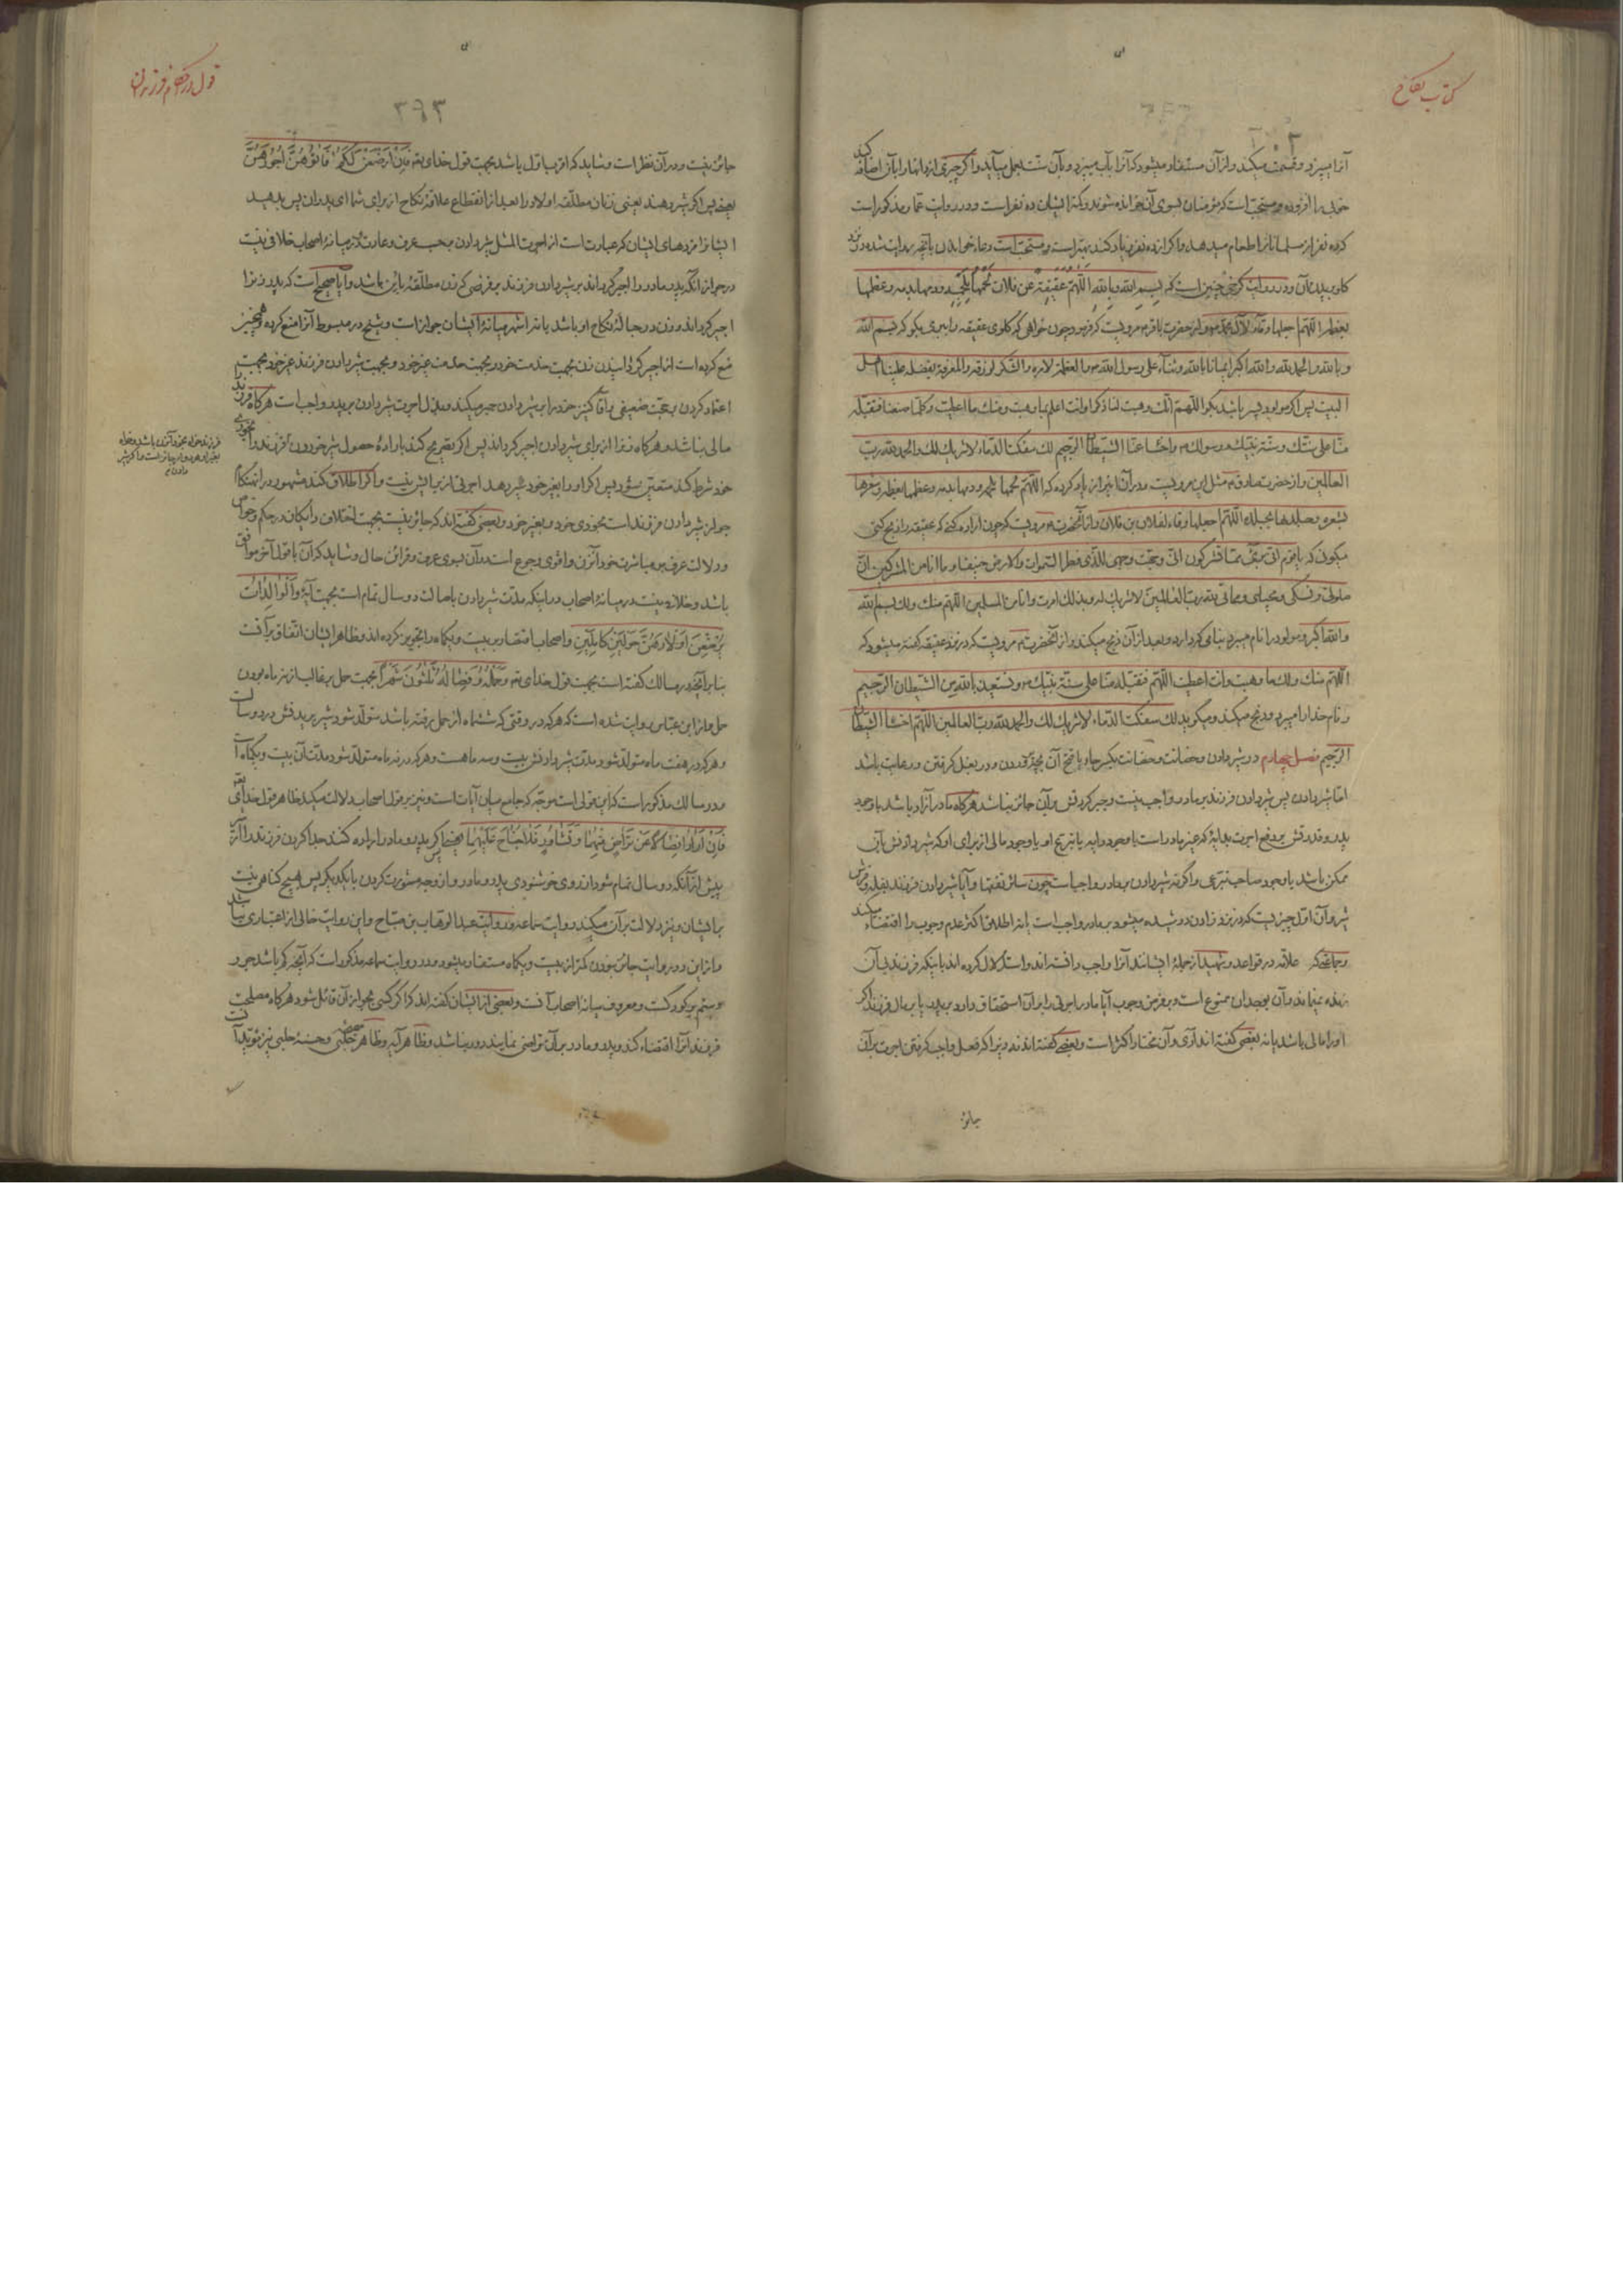 كتاب نكاح
آنرا میپزد و قسمت میکند و از آن مستفاد میشود که آنرا بآب میپزد و بآن سنّت بعمل میآید و اگر چیزی از دانها را بآن اضافه کند
خوبی را افزوده و مستحبّ است که مؤمنان بسوی آن خوانده شوند و کمتر ایشان ده نفر است و در روایت عمّار مذکور است
که ده نفر از مسلمانانرا طعام میدهد و اگر از ده نفر زیاد کند بهتر است و مستحبّ است دعا خواندن بآنچه روایت شده در نزد
کارد بریدن آن و در روایت کرخی چنین است که بسم الله و بالله اللّهمّ عقیقة عن فلان لحمها بلحمه و دمها بدمه و عظمها
بعظمه اللّهمّ اجعلها وقاء لآل محمّد و از حضرت باقر مرویست که فرمود چون خواهی که گلوی عقیقه را ببری بگو که بسم الله
و بالله و الحمد لله و الله اکبر ایمانا بالله و ثناء علی رسول الله و العظمة لامره و الشکر لرزقه و المعرفة بفضله علینا اهل
البیت پس اگر مولود پسر باشد بگو اللّهمّ انّک وهبت لنا ذکرا و انت اعلم بما وهبت و منک ما اعطیت و کلّما صنعنا فتقبّله
منّا علی سنّتک و سنّة نبیّک و رسولک و اخسأ عنّا الشیطان الرجیم لک سفکت الدّماء لا شریک لک و الحمد لله ربّ
العالمین و از حضرت صادق مثل این مرویست و در آن نیز یاد کرده که اللّهمّ لحمها بلحمه و دمها بدمه و عظمها بعظمه و شعرها
بشعره و جلدها بجلده اللّهمّ اجعلها وقاء لفلان بن فلان و از آنحضرت مرویست که چون اراده کنی که عقیقه را ذبح کنی
میگوئی که یا قوم انّی بریء ممّا تشرکون انّی وجّهت وجهی للّذی فطر السّموات و الارض حنیفا و ما انا من المشرکین انّ
صلوتی و نسکی و محیای و مماتی لله ربّ العالمین لا شریک له و بذلک امرت و انا من المسلمین اللّهمّ منک و لک بسم الله
و الله اکبر و مولود را نام میبرد بنامی که دارد و بعد از آن ذبح میکند و از آنحضرت مرویست که در نزد عقیقه گفته میشود که
اللّهمّ منک و لک ما وهبت و انت اعطیت اللّهمّ فتقبّله منّا علی سنّة نبیّک و نستعیذ بالله من الشیطان الرجیم
و نام خدا را میبرد و ذبح میکند و میگوید لک سفکت الدّماء لا شریک لک و الحمد لله ربّ العالمین اللّهمّ اخسأ الشیطان
الرجیم فصل چهارم در شیر دادن و حضانت و حضانت بکسر حاء یا فتح آن بچه پروردن و در بغل گرفتن و رعایت باشد
امّا شیر دادن پس شیر دادن فرزند بر مادر واجب نیست و جبر کردنش بر آن جائز نباشد هرگاه مادر آزاد باشد با وجود
پدر و قدرتش بر دفع اجرت بدایهٔ که غیر مادر است با وجود دایه یا تبرّع او یا وجود مالی از برای او که شیر دادنش بآن
ممکن باشد یا وجود صاحب تبرّعی و اگر نه شیر دادن بر مادر واجب است چون سائر نفقتها و آیا شیر دادن فرزند بفله و فرش
شیر و آن اوّل چیزیست که در نزد زادن دوشیده میشود بر مادر واجب است یا نه اطلاق اکثر عدم وجوب را اقتضاء میکند
و جماعتی که علّامه در قواعد و شهید از جملهٔ ایشانند آنرا واجب دانسته‌اند و استدلال کرده‌اند باینکه فرزند بی آن
زنده نمیماند و آن بوجدان ممنوع است و بر فرض وجوب آیا مادر اجرتی را بر آن استحقاق دارد بر پدر یا بر مال فرزند اگر
او را مالی باشد یا نه بعضی گفته‌اند آری و آن مختار اکثر است و بعضی گفته‌اند نه زیرا که فعل واجب گرفتن اجرت بر آن
جائز
۳۹۳
جائز نیست و در آن نظر است و شاید که اقرب اوّل باشد بجهت قول خدای تعه فَاِنْ اَرْضَعْنَ لَکُمْ فَآتُوهُنَّ اُجُورَهُنَّ
یعنی پس اگر شیر دهند یعنی زنان مطلّقه اولاد را بعد از انقطاع علاقهٔ نکاح از برای شما ای پدران پس بدهید
ایشانرا مزدهای ایشان که عبارت است از اجرت المثل شیر دادن بحسب عرف و عادت و در میانهٔ اصحاب خلافی نیست
در جواز آنکه پدر مادر را اجیر گرداند بر شیر دادن فرزند بر فرضی که زن مطلّقهٔ باین باشد و آیا صحیح است که پدر زنرا
اجیر گرداند و زن در حبالهٔ نکاح او باشد یا نه اشهر میانهٔ ایشان جواز است و شیخ در مبسوط آنرا منع کرده و همچنین
منع کرده است از اجیر گردانیدن زن بجهت خدمت خود و بجهت خدمت غیر خود و بجهت شیر دادن فرزند غیر خود بجهت
اعتماد کردن بر حجّت ضعیفی و آقا کنیز خود را بر شیر دادن جبر میکند و بذل اجرت شیر دادن بر پدر واجب است هرگاه فرزند را
مالی نباشد و هرگاه زنرا از برای شیر دادن اجیر گرداند پس اگر تصریح کند باراده حصول شیر خوردن فرزند و
خود شرط کند متعیّن شود پس اگر او را بغیر خود شیر دهد اجرتی از برایش نیست و اگر اطلاق کند مشهور در آنهنگام
جواز شیر دادن فرزند است بخودی خود و بغیر خود و بعضی گفته‌اند که جائز نیست بجهت اختلاف دایگان در حکم و خواص
و دلالت عرف بر مباشرت خود آنزن و اقوی رجوع است در آن بسوی عرف و قرائن حال و شاید که آن با قول آخر موافق
باشد و خلافی نیست در میانهٔ اصحاب در اینکه مدّت شیر دادن باصالت دو سال تمام است بجهت آیهٔ وَالْوالِداتُ
یُرْضِعْنَ اَوْلادَهُنَّ حَوْلَیْنِ کامِلَیْنِ و اصحاب اقتصار بر بیست و یکماه را تجویز کرده‌اند و ظاهر ایشان اتّفاق بر آنست
بنا بر آنچه در مسالک گفته است بجهت قول خدای تعه وَحَمْلُهُ وَفِصالُهُ ثَلاثُونَ شَهْرًا بجهت حمل بر غالب از نه ماه بودن
حمل و از ابن عبّاس روایت شده است که هر که در وقتی که ششماه از حمل رفته باشد متولّد شود شیر بریدنش در دو سال است
و هر که در هفت ماه متولّد شود مدّت شیر دادنش بیست و سه ماهست و هر که در نه ماه متولّد شود مدّت آن بیست و یکماه است
و در مسالک مذکور است که این قولی است موجّه که جامع میان آیات است و نیز بر قول اصحاب دلالت میکند ظاهر قول خدای تعه
فَاِنْ اَرادا فِصالاً عَنْ تَراضٍ مِنْهُما وَتَشاوُرٍ فَلا جُناحَ عَلَیْهِما یعنی پس اگر پدر و مادر اراده کنند جدا کردن فرزند را از شیر
پیش از آنکه دو سال تمام شود از روی خوشنودی پدر و مادر و از وجه مشورت کردن با یکدیگر پس هیچ گناهی نیست
بر ایشان و نیز دلالت بر آن میکند روایت سماعه و روایت عبد الوهّاب بن صبّاح و این روایت خالی از اعتباری نباشد
و از این دو روایت جائز نبودن کمتر از بیست و یکماه مستفاد میشود و در روایت سماعه مذکور است که آنچه کم باشد جور و
ستم بر کودک است و معروف میانهٔ اصحاب آنست و بعضی از ایشان گفته‌اند که اگر کسی بجواز آن قائل شود هرگاه مصلحت
فرزند آنرا اقتضاء کند و پدر و مادر بر آن تراضی نمایند دور نباشد و ظاهر آیه و ظاهر صحیحهٔ حلبی و حسنهٔ حلبی نیز مؤیّد آنست